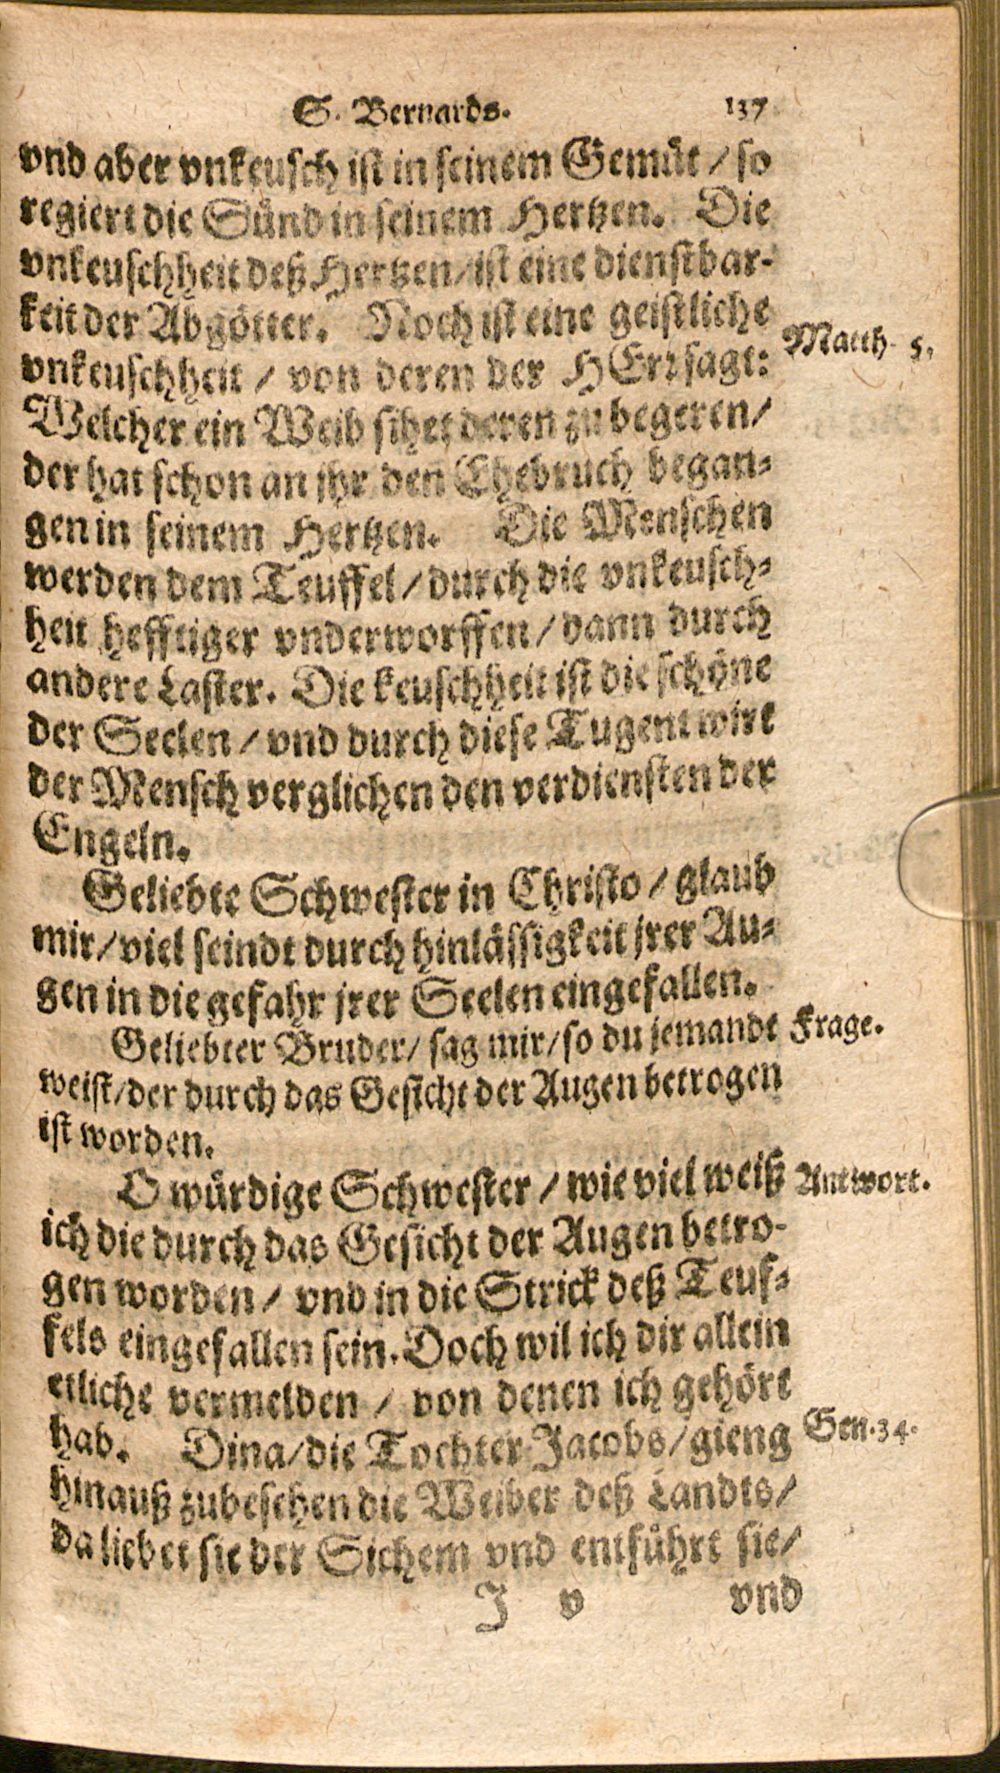 S. Bernards. 137
vnd aber vnkeusch ist in seinem Gemüt / so
regiert die Sünd in seinem Hertzen. Die
vnkeuschheit deß Hertzen / ist eine dienstbar-
keit der Abgötter. Noch ist eine geistliche
vnkeuschheit / von deren der HErr sagt:
Matth. 5.
Welcher ein Weib sihet deren zu begeren /
der hat schon an jhr den Ehebruch began-
gen in seinem Hertzen. Die Menschen
werden dem Teuffel / durch die vnkeusch-
heit hefftiger vnderworffen / dann durch
andere Laster. Die keuschheit ist die schöne
der Seelen / vnd durch diese Tugent wirt
der Mensch verglichen den verdiensten der
Engeln.
Geliebte Schwester in Christo / glaub
mir / viel seindt durch hinlässigkeit jrer Au-
gen in die gefahr jrer Seelen eingefallen.
Geliebter Bruder / sag mir / so du jemandt
Frage.
weist / der durch das Gesicht der Augen betrogen
ist worden.
O würdige Schwester / wie viel weiß
Antwort.
ich die durch das Gesicht der Augen betro-
gen worden / vnd in die Strick deß Teuf-
fels eingefallen sein. Doch wil ich dir allein
etliche vermelden / von denen ich gehört
hab. Dina / die Tochter Jacobs / gieng
Gen. 34.
hinauß zubesehen die Weiber deß Landts /
da liebet sie der Sichem vnd entführt sie /
J v vnd